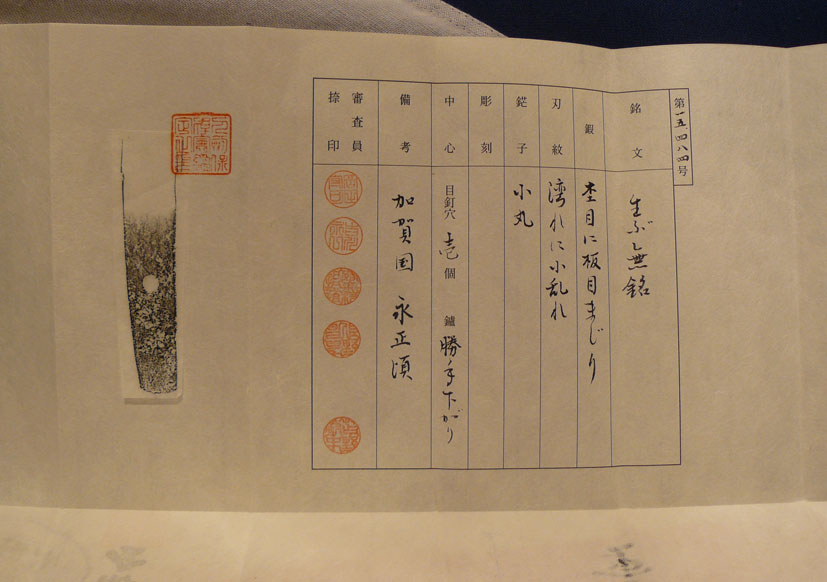 第一五四八四号
銘文
生ぶ無銘
鍜
杢目に板目まじり
刃紋
湾れに小乱れ
鋩子
小丸
彫刻
中心
目釘穴 壱個 鑪 勝手下がり
備考
加賀国 永正頃
審査員
捺印